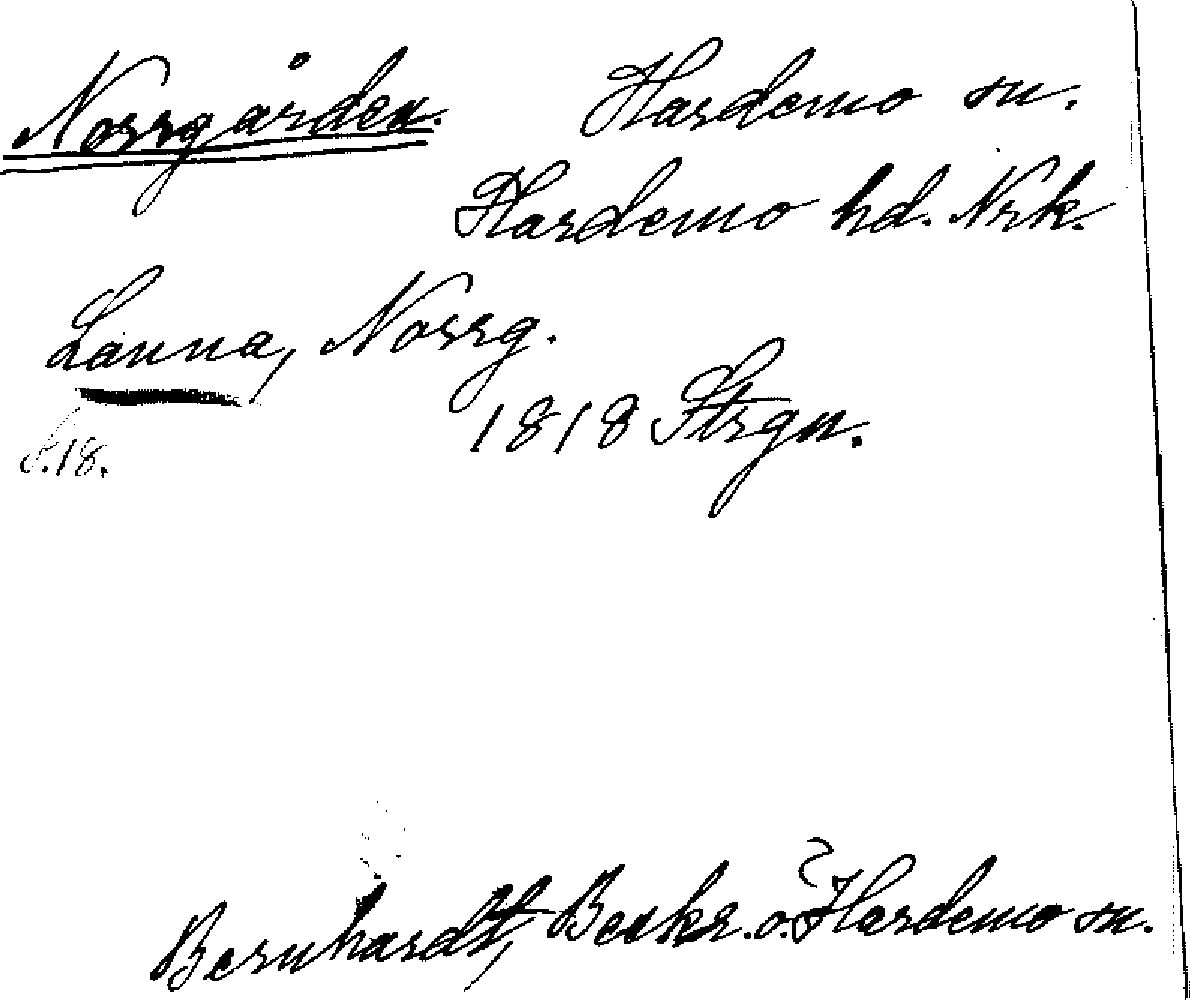 Norrgården. Hardemo sn.
Hardemo hd. Nrk.
Lanna, Norrg.
1818 Strgn.
S. 18.
Bernhardt, Beskr. ö. Hardemo sn.